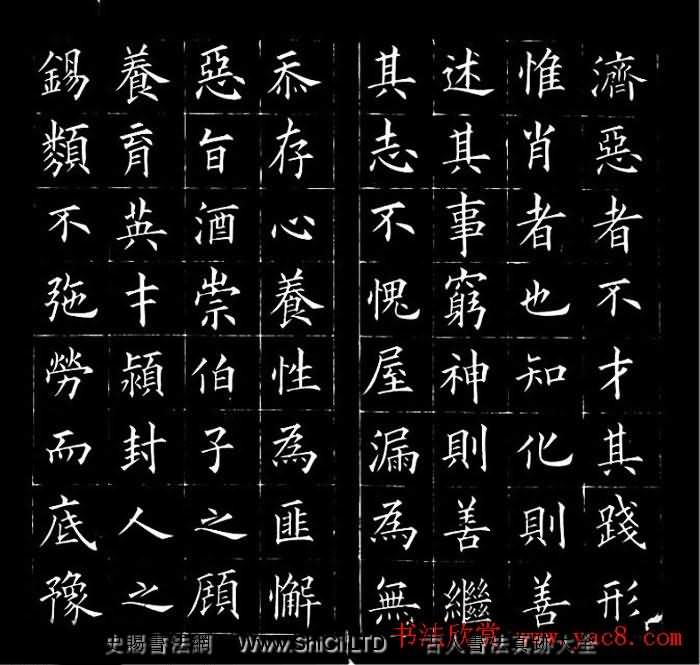 濟惡者不才其踐形
惟肖者也知化則善
述其事窮神則善繼
其志不愧屋漏為無
忝存心養性為匪懈
惡旨酒崇伯子之顧
養育英才潁封人之
錫類不弛勞而底豫
史賜書法網 www.ShiCi.LTD 古人書法真跡大全
书法欣赏 www.yac8.com